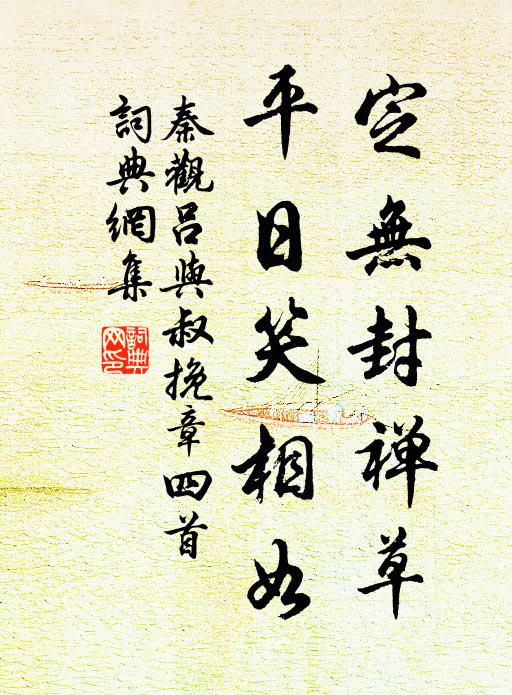 定無封禅草
平日笑相如
秦觀呂與叔挽章四首
詞典網集
詞典
网印